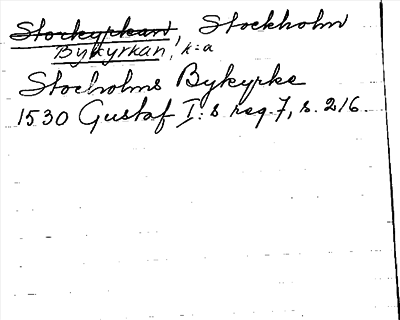 Storkyrkan, Stockholm
Bykyrkan, k:a
Stocholms Bykyrke
1530 Gustaf I:s reg. 7, s. 216.